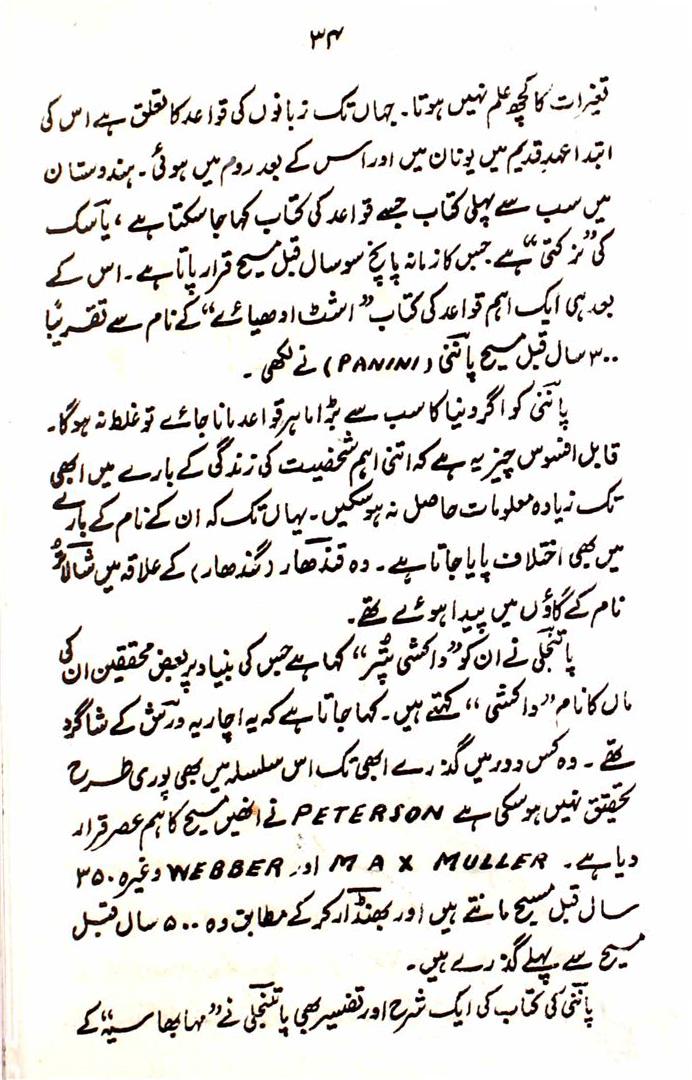 ۳۴
تغیرات کا کچھ علم نہیں ہوتا۔ جہاں تک زبانوں کی قواعد کا تعلق ہے اس کی
ابتدا عہدِ قدیم میں یونان میں اور اس کے بعد روم میں ہوئی۔ ہندوستان
میں سب سے پہلی کتاب جسے قواعد کی کتاب کہا جا سکتا ہے، یاسک
کی ”نرکتی“ ہے جس کا زمانہ پانچ سو سال قبل مسیح قرار پاتا ہے۔ اس کے
بعد ہی ایک اہم قواعد کی کتاب ”اشٹ ادھیائے“ کے نام سے تقریباً
۳۰۰ سال قبل مسیح پاننی (PANINI) نے لکھی۔
پاننی کو اگر دنیا کا سب سے بڑا ماہر قواعد مانا جائے تو غلط نہ ہوگا۔
قابل افسوس چیز یہ ہے کہ اتنی اہم شخصیت کی زندگی کے بارے میں ابھی
تک زیادہ معلومات حاصل نہ ہو سکیں۔ یہاں تک کہ ان کے نام کے بارے
میں بھی اختلاف پایا جاتا ہے۔ وہ قندھار (گندھار) کے علاقہ میں شالاتُر
نام کے گاؤں میں پیدا ہوئے تھے۔
پاتنجلی نے ان کو ”داکشی پُتر“ کہا ہے جس کی بنیاد پر بعض محققین ان کی
ماں کا نام ”داکشی“ کہتے ہیں۔ کہا جاتا ہے کہ یہ اچاریہ ورش کے شاگرد
تھے۔ وہ کس دور میں گذرے ابھی تک اس سلسلہ میں بھی پوری طرح
تحقیق نہیں ہو سکی ہے PETERSON نے انھیں مسیح کا ہم عصر قرار
دیا ہے۔ MAX MULLER اور WEBBER وغیرہ ۳۵۰
سال قبل مسیح مانتے ہیں اور بھنڈارکر کے مطابق وہ ۵۰۰ سال قبل
مسیح سے پہلے گذرے ہیں۔
پاننی کی کتاب کی ایک شرح اور تفسیر بھی پاتنجلی نے ”مہابھاسیہ“ کے